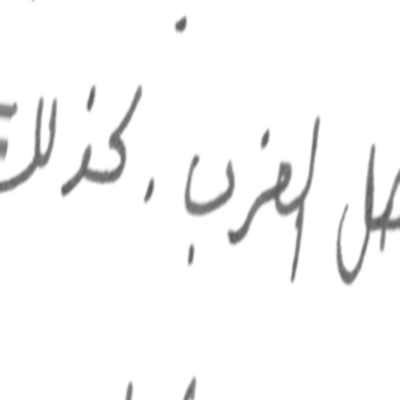 الغرب . كذلك